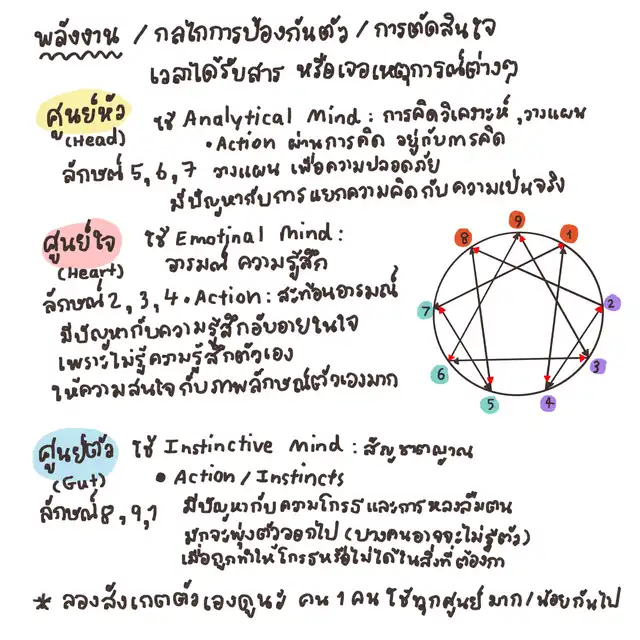 พลังงาน / กลไกการป้องกันตัว / การตัดสินใจ
เวลาได้รับสาร หรือเจอเหตุการณ์ต่างๆ
ศูนย์หัว
(Head)
ใช้ Analytical Mind : การคิดวิเคราะห์, วางแผน
•Action ผ่านการคิด อยู่กับการคิด
ลักษณ์ 5, 6, 7 วางแผน เพื่อความปลอดภัย
มีปัญหากับการ แยกความคิดกับความเป็นจริง
ศูนย์ใจ
(Heart)
ใช้ Emotinal Mind :
อารมณ์ ความรู้สึก
ลักษณ์ 2, 3, 4 • Action : สะท้อนอารมณ์
มีปัญหากับความรู้สึกอับอายในใจ
เพราะไม่รู้ความรู้สึกตัวเอง
ให้ความสนใจกับภาพลักษณ์ตัวเองมาก
9
8
1
7
2
6
3
5
4
ศูนย์ตัว
(Gut)
ใช้ Instinctive Mind : สัญชาตญาณ
• Action / Instincts
ลักษณ์ 8, 9, 1 มีปัญหากับความโกรธและการหลงลืมตน
มักจะพุ่งตัวออกไป (บางคนอาจจะไม่รู้ตัว)
เมื่อถูกทำให้โกรธหรือไม่ได้ในสิ่งที่ต้องกา
* ลองสังเกตตัวเองดูนะ คน 1 คน ใช้ทุกศูนย์ มาก/น้อยกันไป